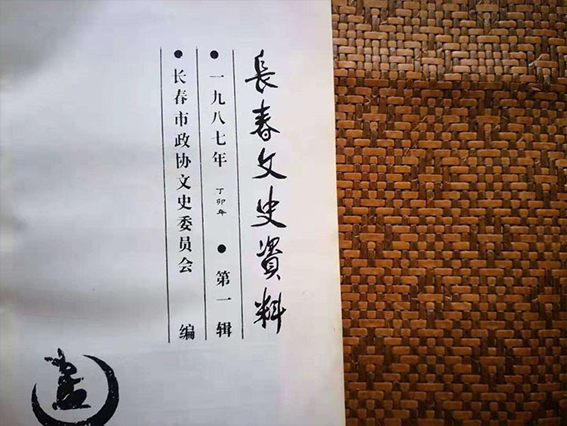 長春文史資料
● 一九八七年 丁卯年 ● 第一辑
● 长春市政协文史委员会 编